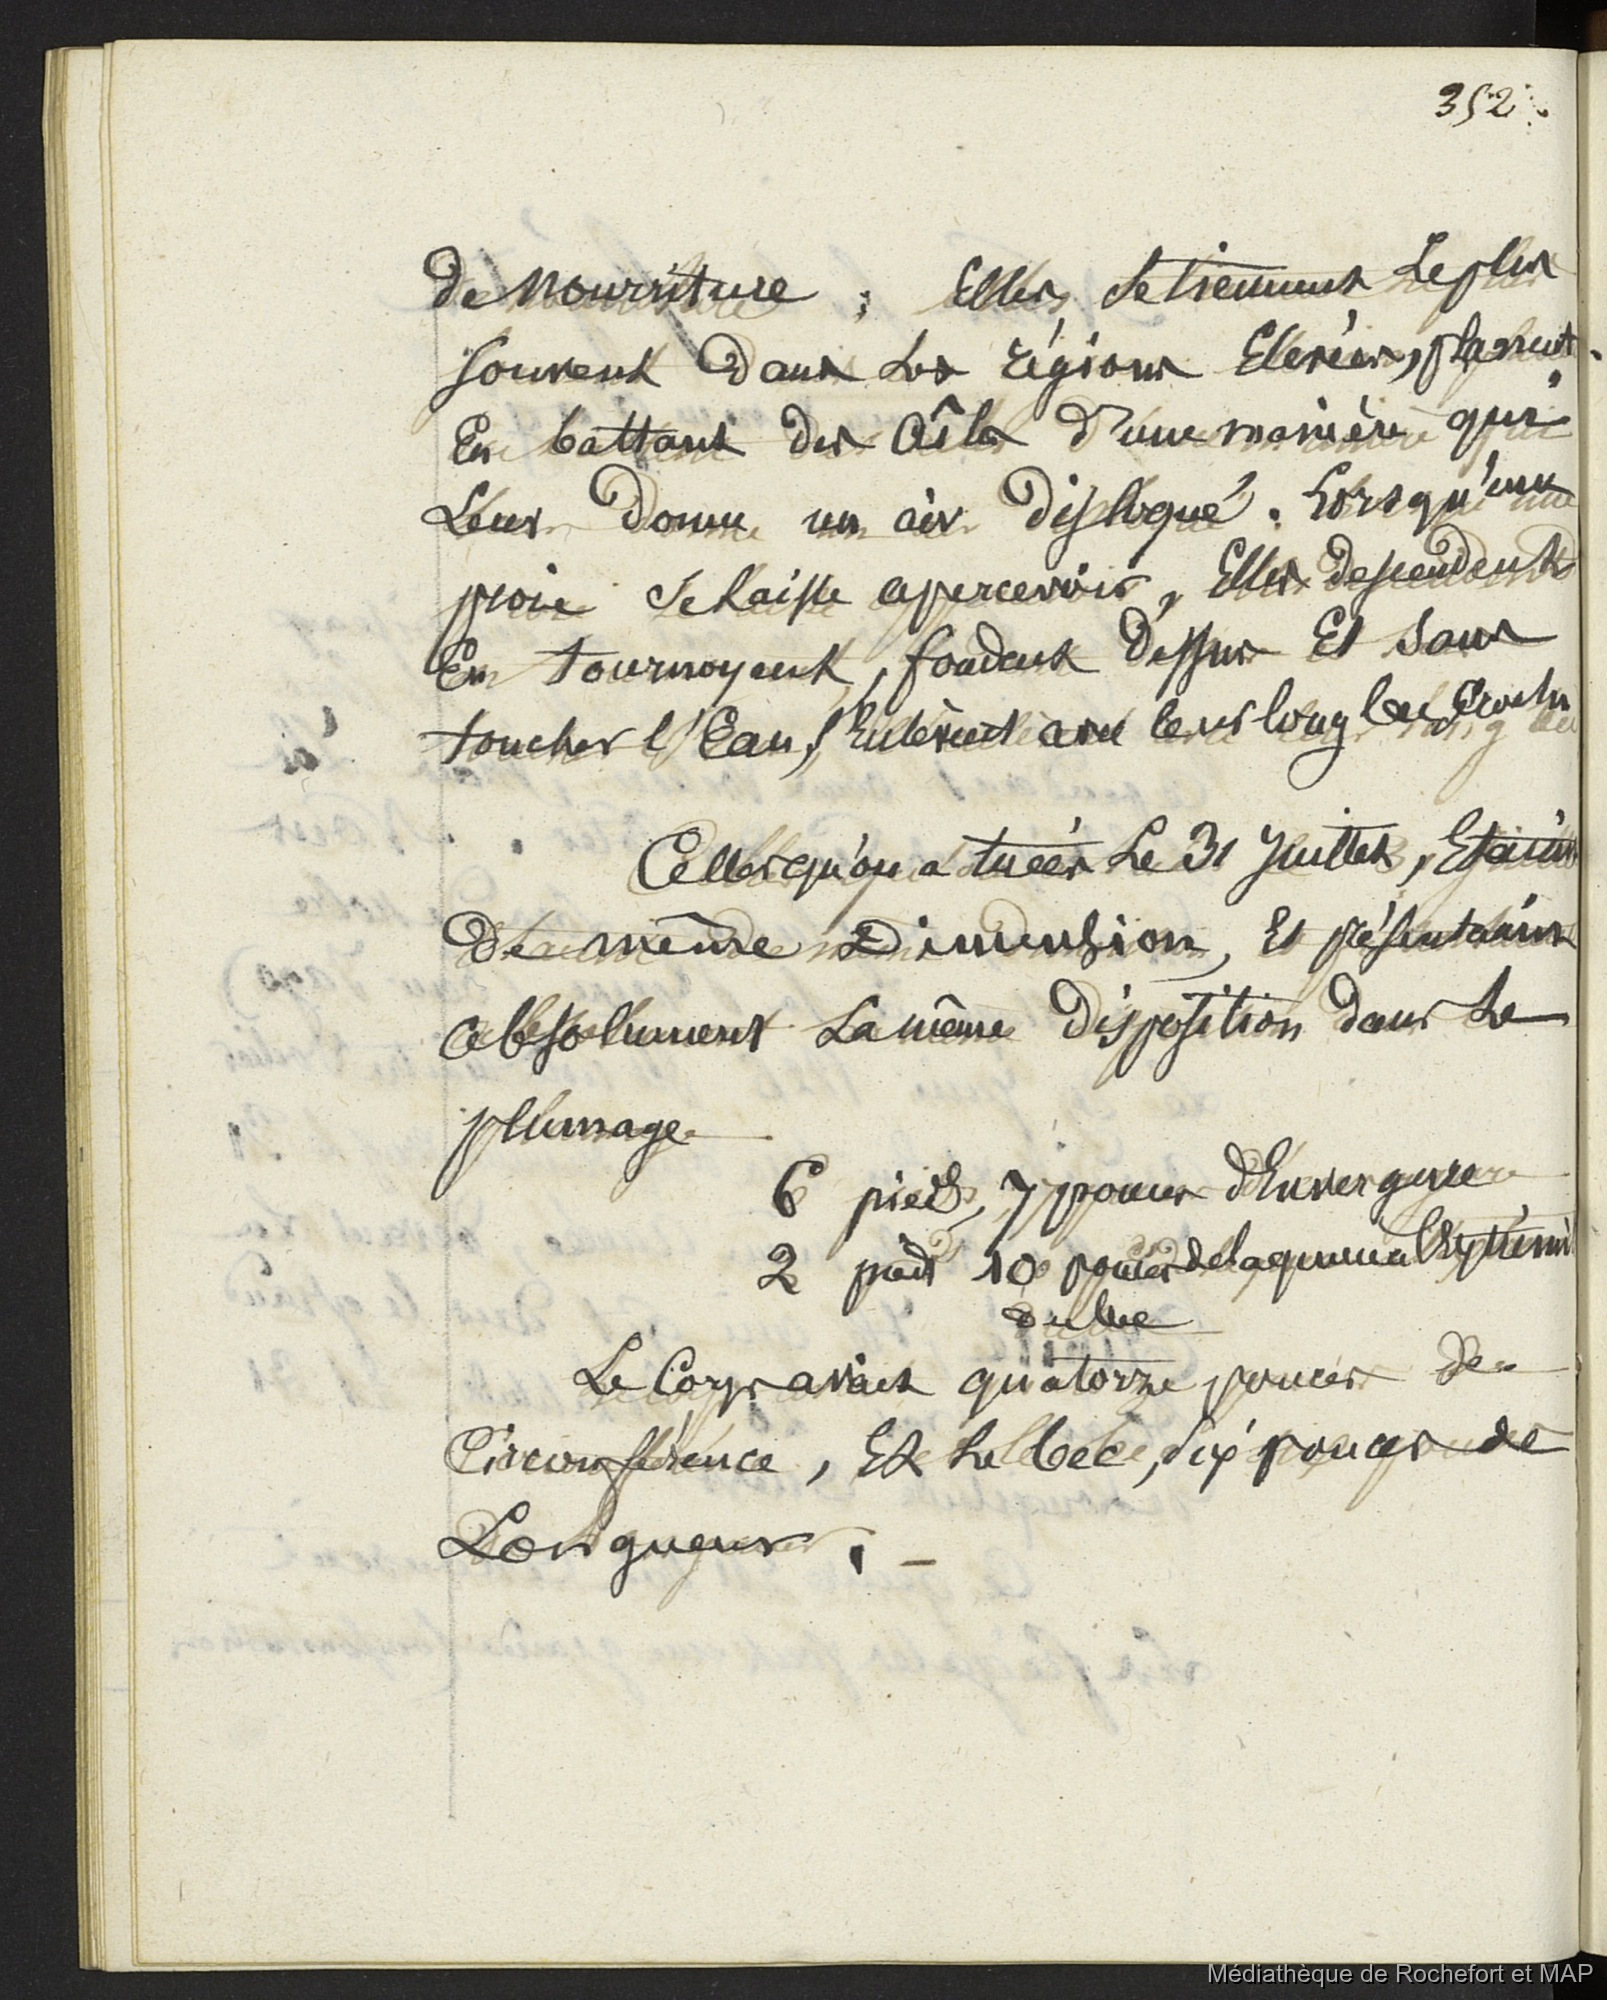 352.
de nourriture ; Elles se tiennent le plus
souvent dans les régions Elevées, planent
En battant des aîles d'une manière qui
leur donne un air disloqué. Lorsqu'une
proie se laisse apercevoir, Elles descendent
En tournoyant, fondent dessus Et sans
toucher l'Eau, l'Enlèvent avec leur long bec crochu
Celles qu'on a tuées le 31 Juillet, Etaient
de même dimension, Et présentaient
absolument la même disposition dans le
plumage
6 pieds, 7 pouces d'Envergure
2 pieds 10 pouces de la queue a l'Extrémité
du bec
Le Corps avait quatorze pouces de
Circonférence, Et le bec, six pouces de
Longueur. –
Médiathèque de Rochefort et MAP